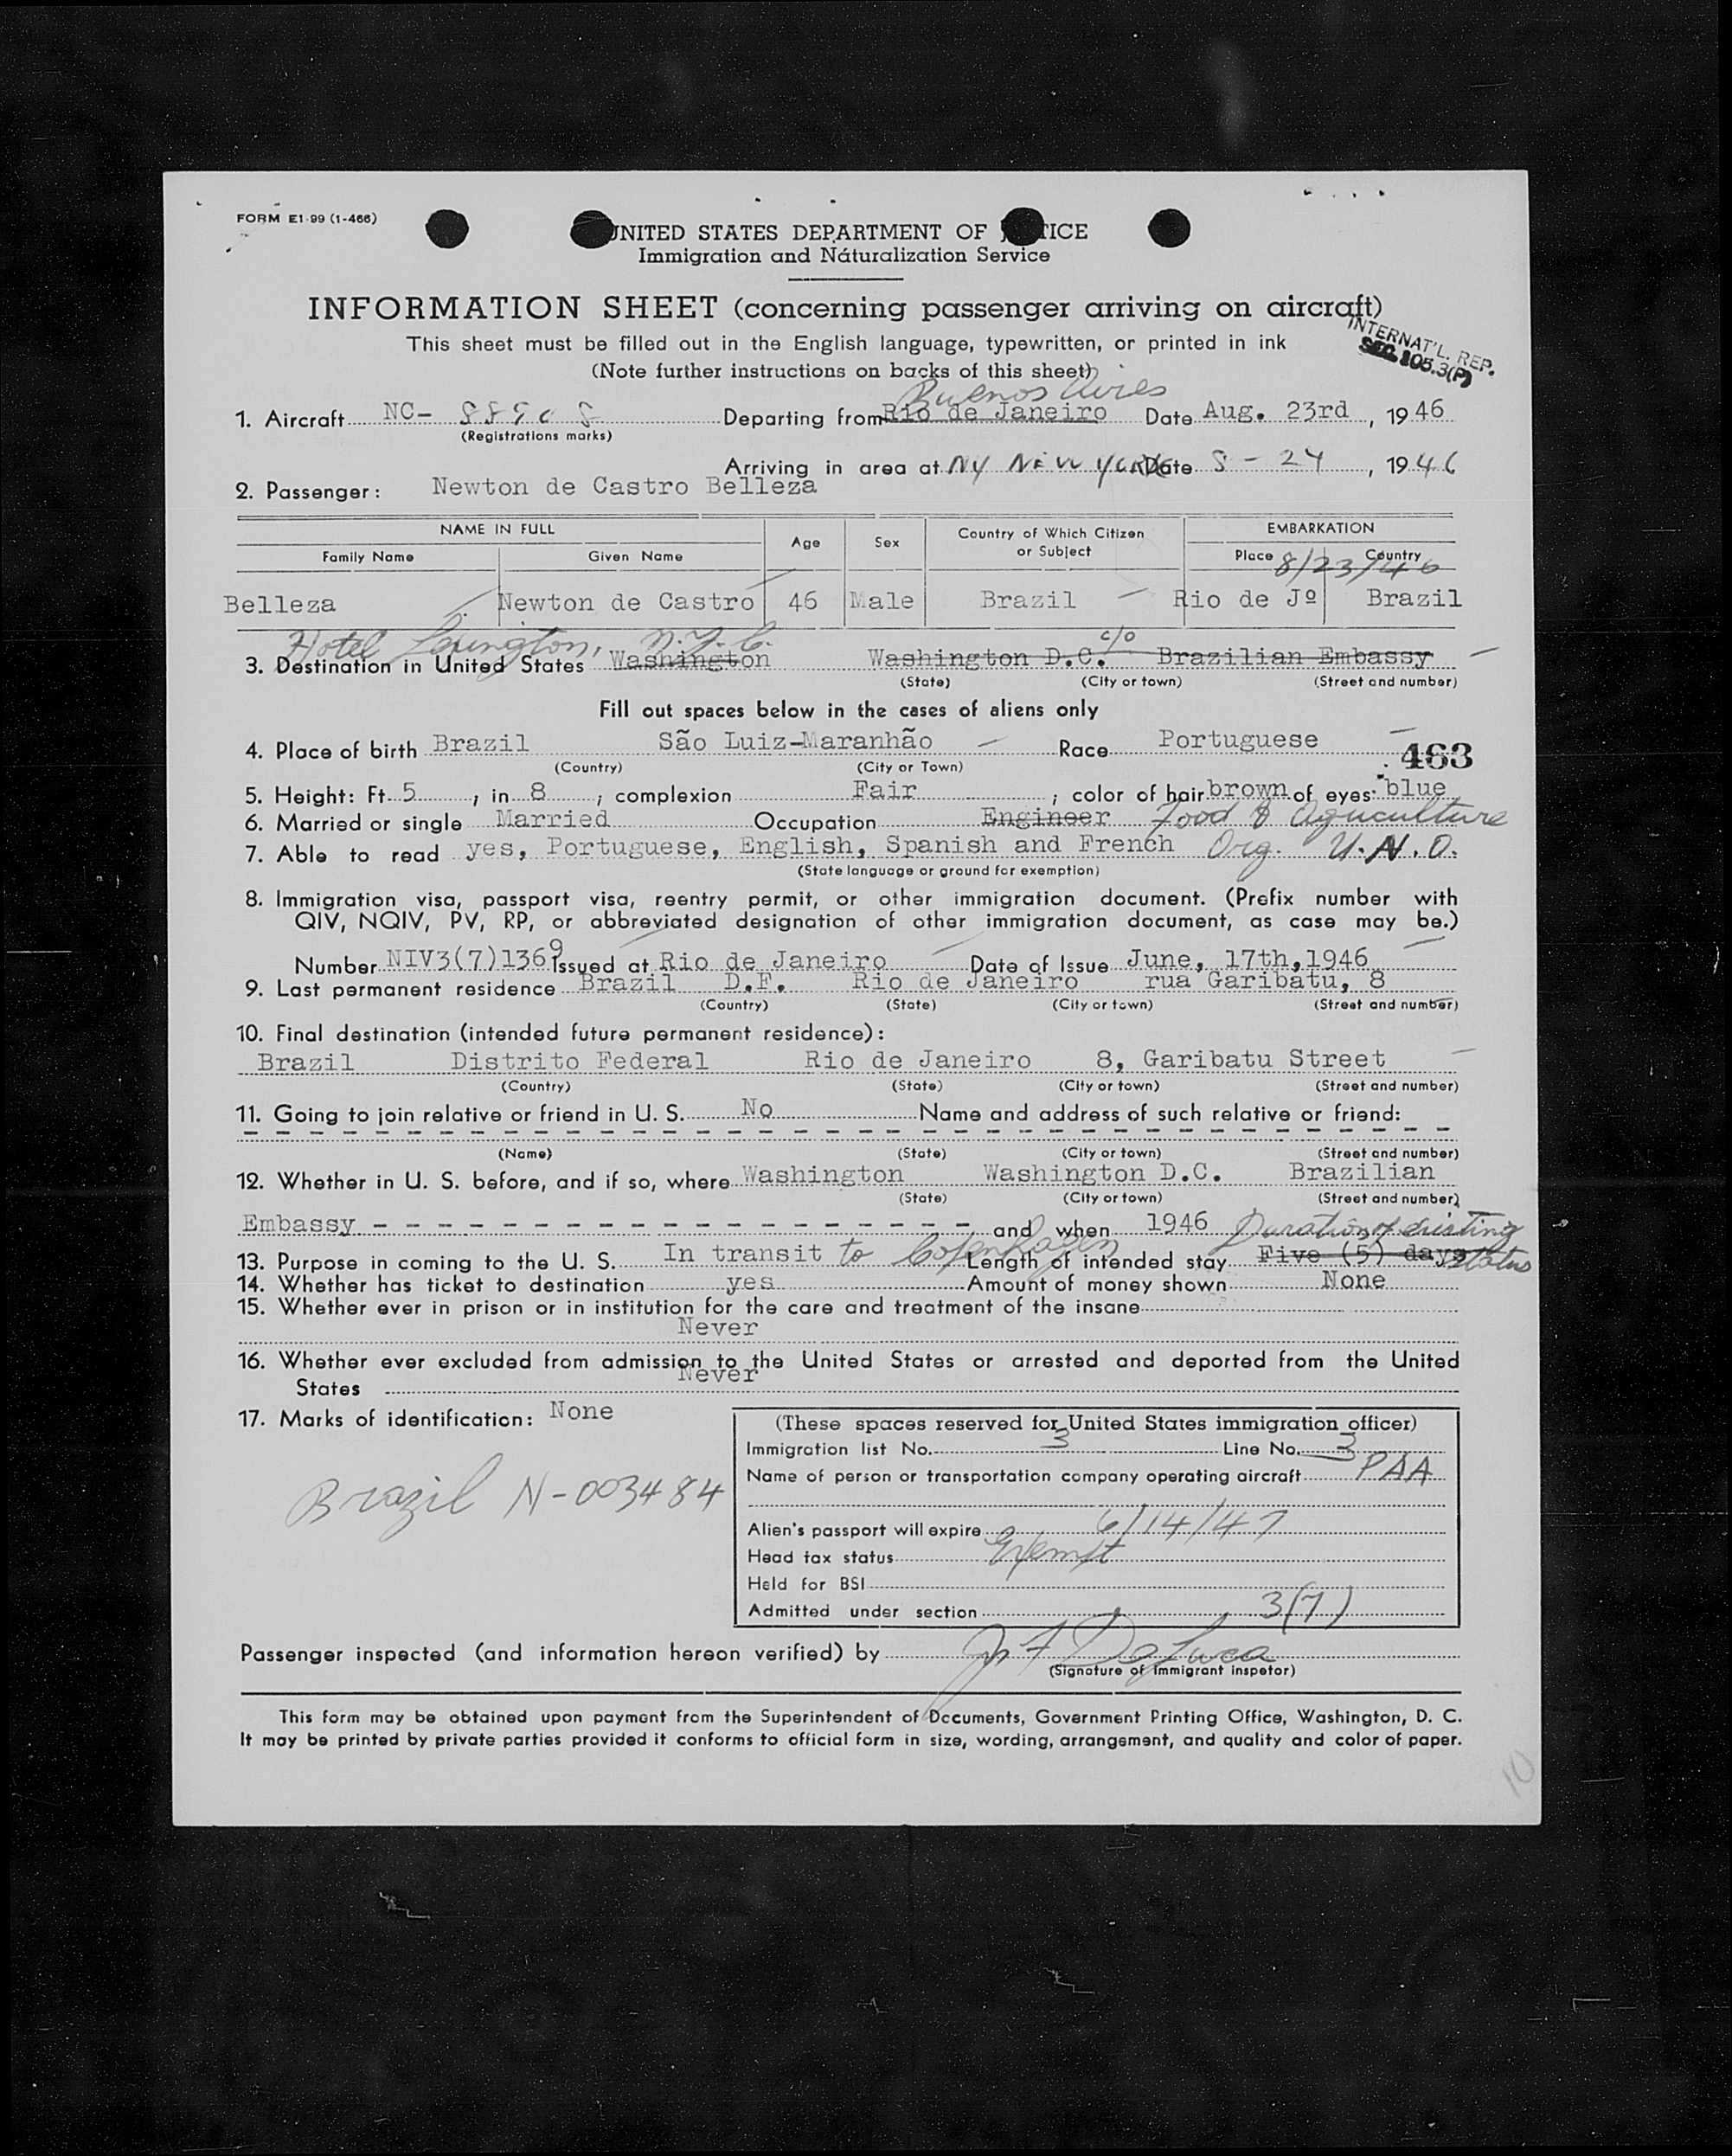 FORM E1-99 (1-466)
UNITED STATES DEPARTMENT OF JUSTICE
Immigration and Naturalization Service
INFORMATION SHEET (concerning passenger arriving on aircraft)
INTERNAT'L. REP.
SEC. 105.3(P)
This sheet must be filled out in the English language, typewritten, or printed in ink
(Note further instructions on backs of this sheet)
Buenos Aires
1. Aircraft NC- Departing from Rio de Janeiro Date Aug. 23rd, 1946
(Registrations marks)
Arriving in area at NY NEW YORK Date 8-24, 1946
2. Passenger: Newton de Castro Belleza
NAME IN FULL Age Sex Country of Which Citizen or Subject EMBARKATION
Family Name Given Name Place Country
8/23/46
Belleza Newton de Castro 46 Male Brazil Rio de Jº Brazil
Hotel Lexington, N.Y.C. c/o
3. Destination in United States Washington Washington D.C. Brazilian Embassy
(State) (City or town) (Street and number)
Fill out spaces below in the cases of aliens only
4. Place of birth Brazil São Luiz-Maranhão Race Portuguese
(Country) (City or Town) 463
5. Height: Ft. 5, in 8; complexion Fair; color of hair brown of eyes: blue
6. Married or single Married Occupation Engineer Food & Agriculture
7. Able to read yes, Portuguese, English, Spanish and French Org. U.N.O.
(State language or ground for exemption)
8. Immigration visa, passport visa, reentry permit, or other immigration document. (Prefix number with
QIV, NQIV, PV, RP, or abbreviated designation of other immigration document, as case may be.)
Number NIV3(7)1369 Issued at Rio de Janeiro Date of Issue June, 17th,1946
9. Last permanent residence Brazil D.F. Rio de Janeiro rua Garibatu, 8
(Country) (State) (City or town) (Street and number)
10. Final destination (intended future permanent residence):
Brazil Distrito Federal Rio de Janeiro 8, Garibatu Street
(Country) (State) (City or town) (Street and number)
11. Going to join relative or friend in U. S. No Name and address of such relative or friend:
(Name) (State) (City or town) (Street and number)
12. Whether in U. S. before, and if so, where Washington Washington D.C. Brazilian
(State) (City or town) (Street and number)
Embassy - - - - - - - - - - - - - - - - - - - and when 1946 Duration of existing
13. Purpose in coming to the U. S. In transit to Copenhagen Length of intended stay Five (5) days status
14. Whether has ticket to destination yes Amount of money shown None
15. Whether ever in prison or in institution for the care and treatment of the insane
Never
16. Whether ever excluded from admission to the United States or arrested and deported from the United
States Never
17. Marks of identification: None
(These spaces reserved for United States immigration officer)
Immigration list No. 3 Line No. 3
Name of person or transportation company operating aircraft PAA
Brazil N-003484
Alien's passport will expire 6/14/47
Head tax status Exempt
Held for BSI
Admitted under section 3(7)
Passenger inspected (and information hereon verified) by DeLuca
(Signature of Immigrant Inspetor)
This form may be obtained upon payment from the Superintendent of Documents, Government Printing Office, Washington, D. C.
It may be printed by private parties provided it conforms to official form in size, wording, arrangement, and quality and color of paper.
10